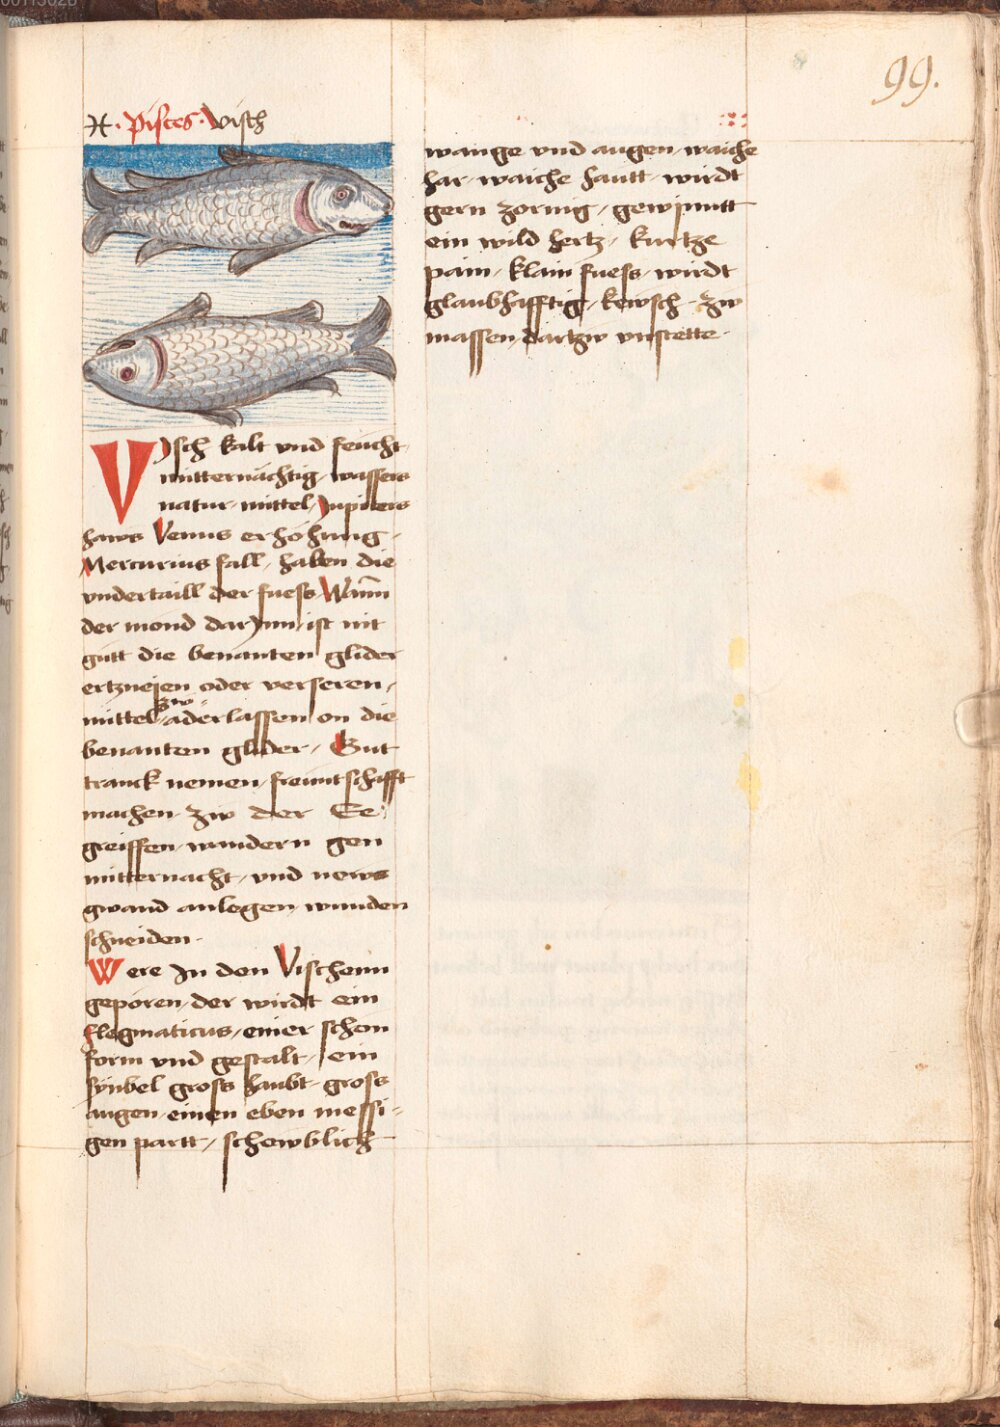 99.
♓ · Pisces · visch
Visch kalt vnd feücht
mitternächtig, wassers
natur, mittel, Jupiters
haws Venus erhöhung,
Mercurius fall, haben die
vndertaill der fuess, Wan̄
der mond darynn, ist nit
gutt die benanten glider
ertzneien oder verseren,
mittel zw aderlassen on die
benanten glider, Gut
tranck nemen, freuntschafft
machen, zw der Ee,
greiffen, wandern gen
mitternacht, vnd news
gwand anlegen, wunden
schneiden.
Were Jn den Vischenn
geporen, der wirdt ein
flegmaticus, einer schön
form vnd gestalt, ein
synbel gross haubt, gross
augen, einen eben messi-
gen partt, schewblich
wange vnd augen, waiche
har, waiche hautt, wirdt
gern zornig, gewynntt
ein wild hertz, kurtze
pain, klain fuess, wirdt
glaubhafftig, kewsch, zw
massen, dartzw vnstette.